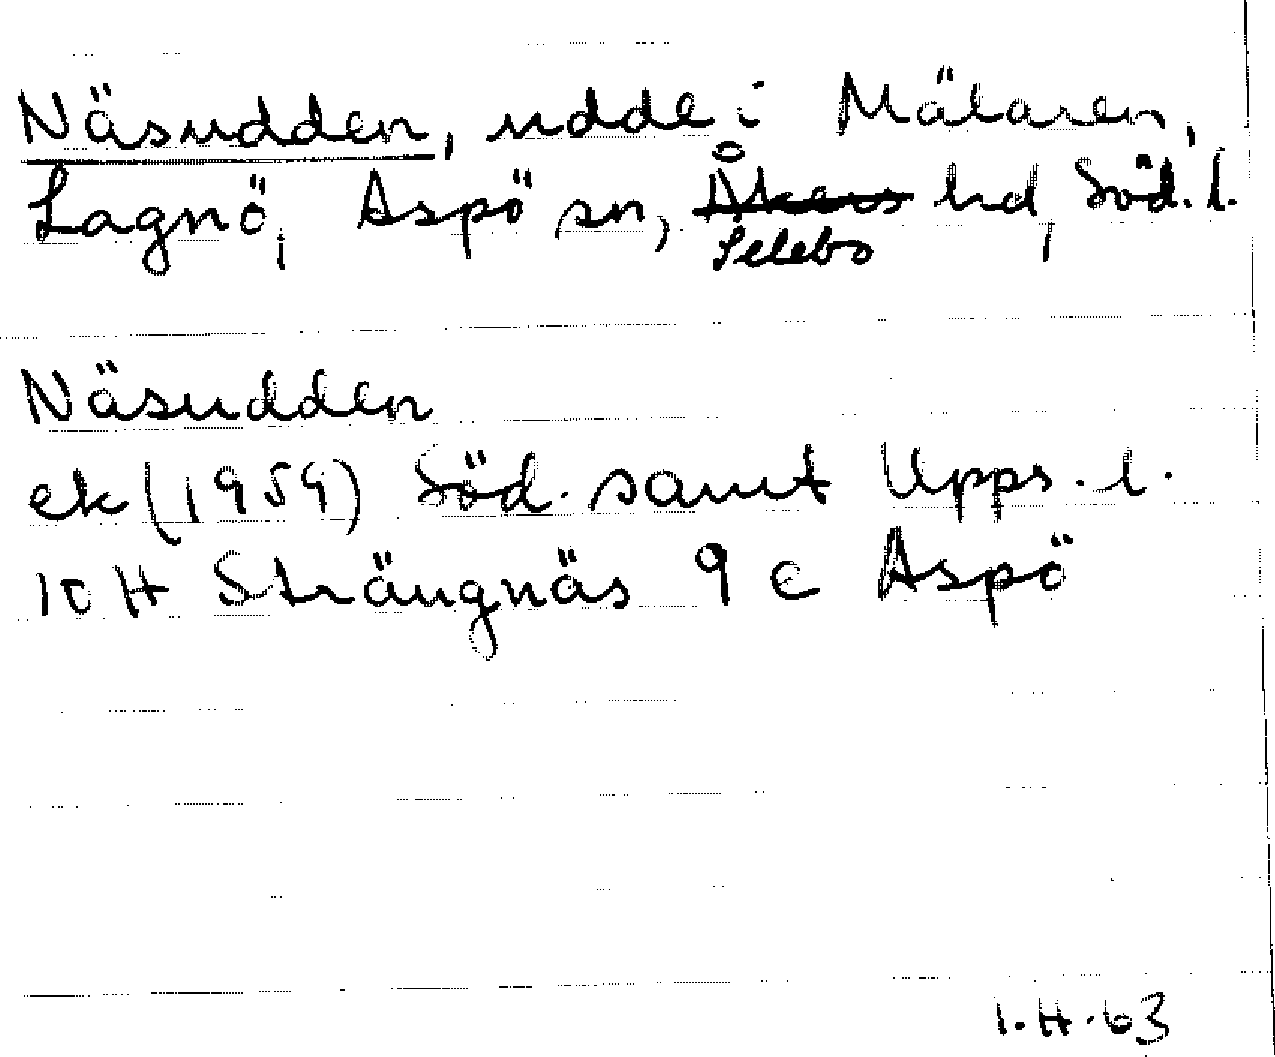 Näsudden, udde i Mälaren,
Lagnö, Aspö sn, Åkers hd, Söd. l.
Selebo
Näsudden
ek (1959) Söd. samt Upps. l.
10 H Strängnäs 9 c Aspö
I.H.63